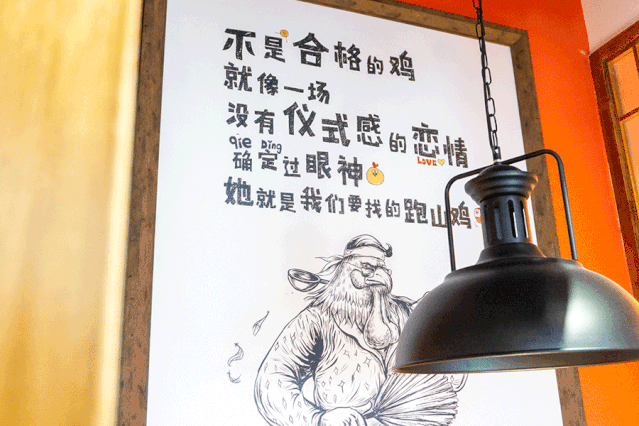 不是合格的鸡
就像一场
没有仪式感的恋情
LOVE
qie Ding
确定过眼神
她就是我们要找的跑山鸡